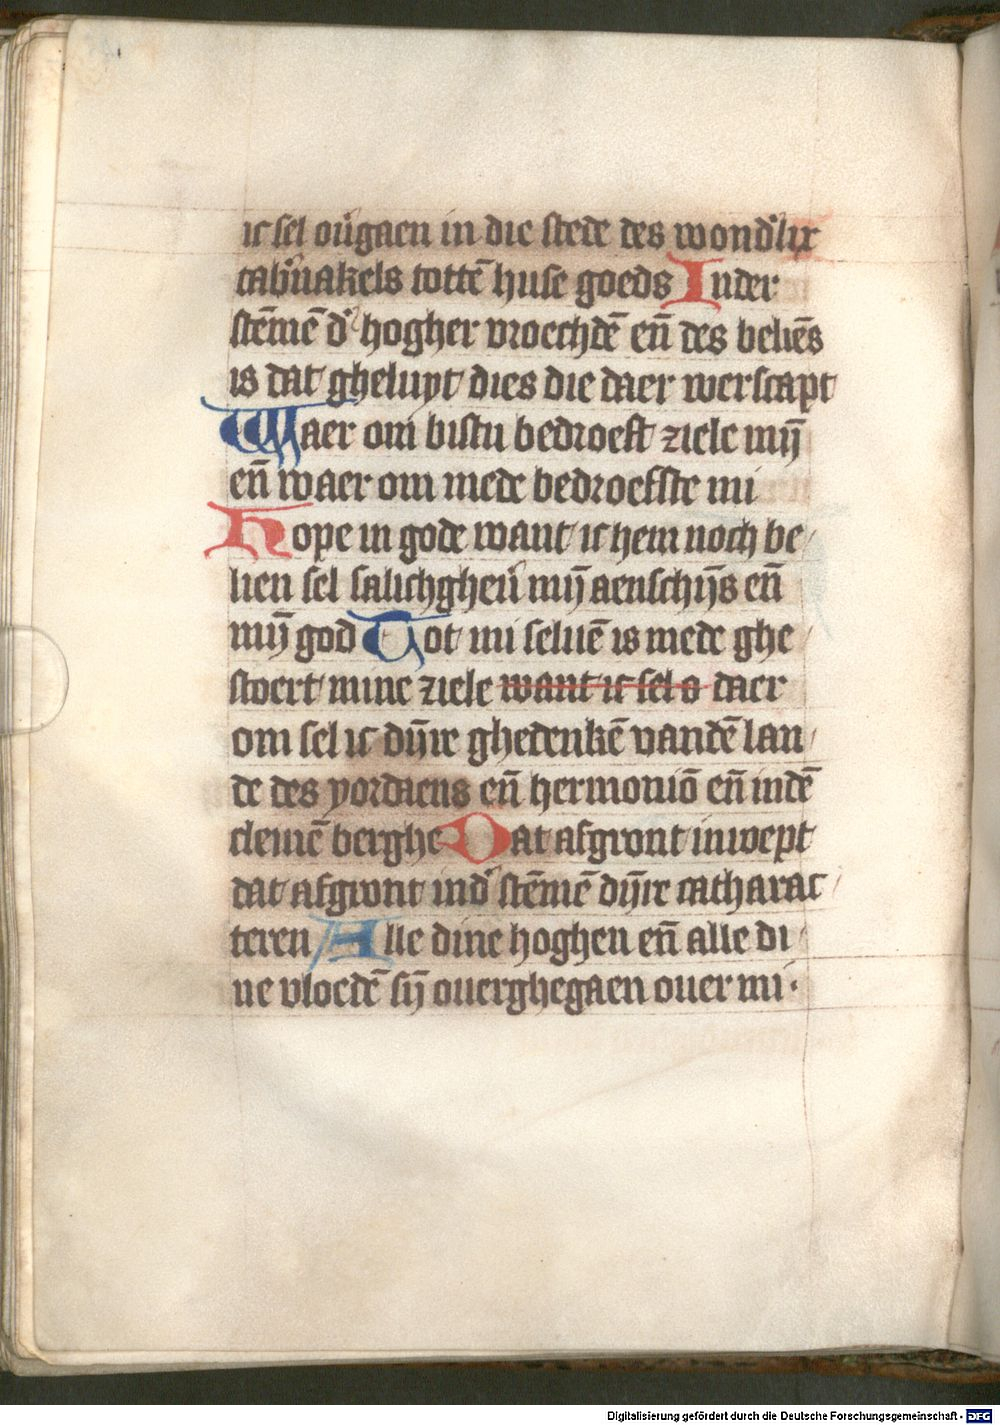 ic sel ou̾gaen in die stede des wond̾lix
tab̾nakels tottē huse goeds Inder
stēmē d̾ hogher vroechdē en̄ des beliēs
is dat gheluyt dies die daer werscapt
Waer om bistu bedroeft ziele mȳ
en̄ waer om mede bedroefste mi
Hope in gode want ic hem noch be/
lien sel salichgheu̾ mȳ aenschȳs en̄
mȳ god Tot mi seluē is mede ghe
stoert mine ziele want ic sel o daer
om sel ic dȳre ghedenkē vandē lan/
de des yordaens en̄ hermoniō en̄ indē
clemē berghe Dat afgront inroept
dat afgront ind̾ stēmē dȳre catharac/
teren Alle dine hoghen en̄ alle di/
ne vloedē sȳ ouerghegaen ouer mi·
Digitalisierung gefördert durch die Deutsche Forschungsgemeinschaft - DFG